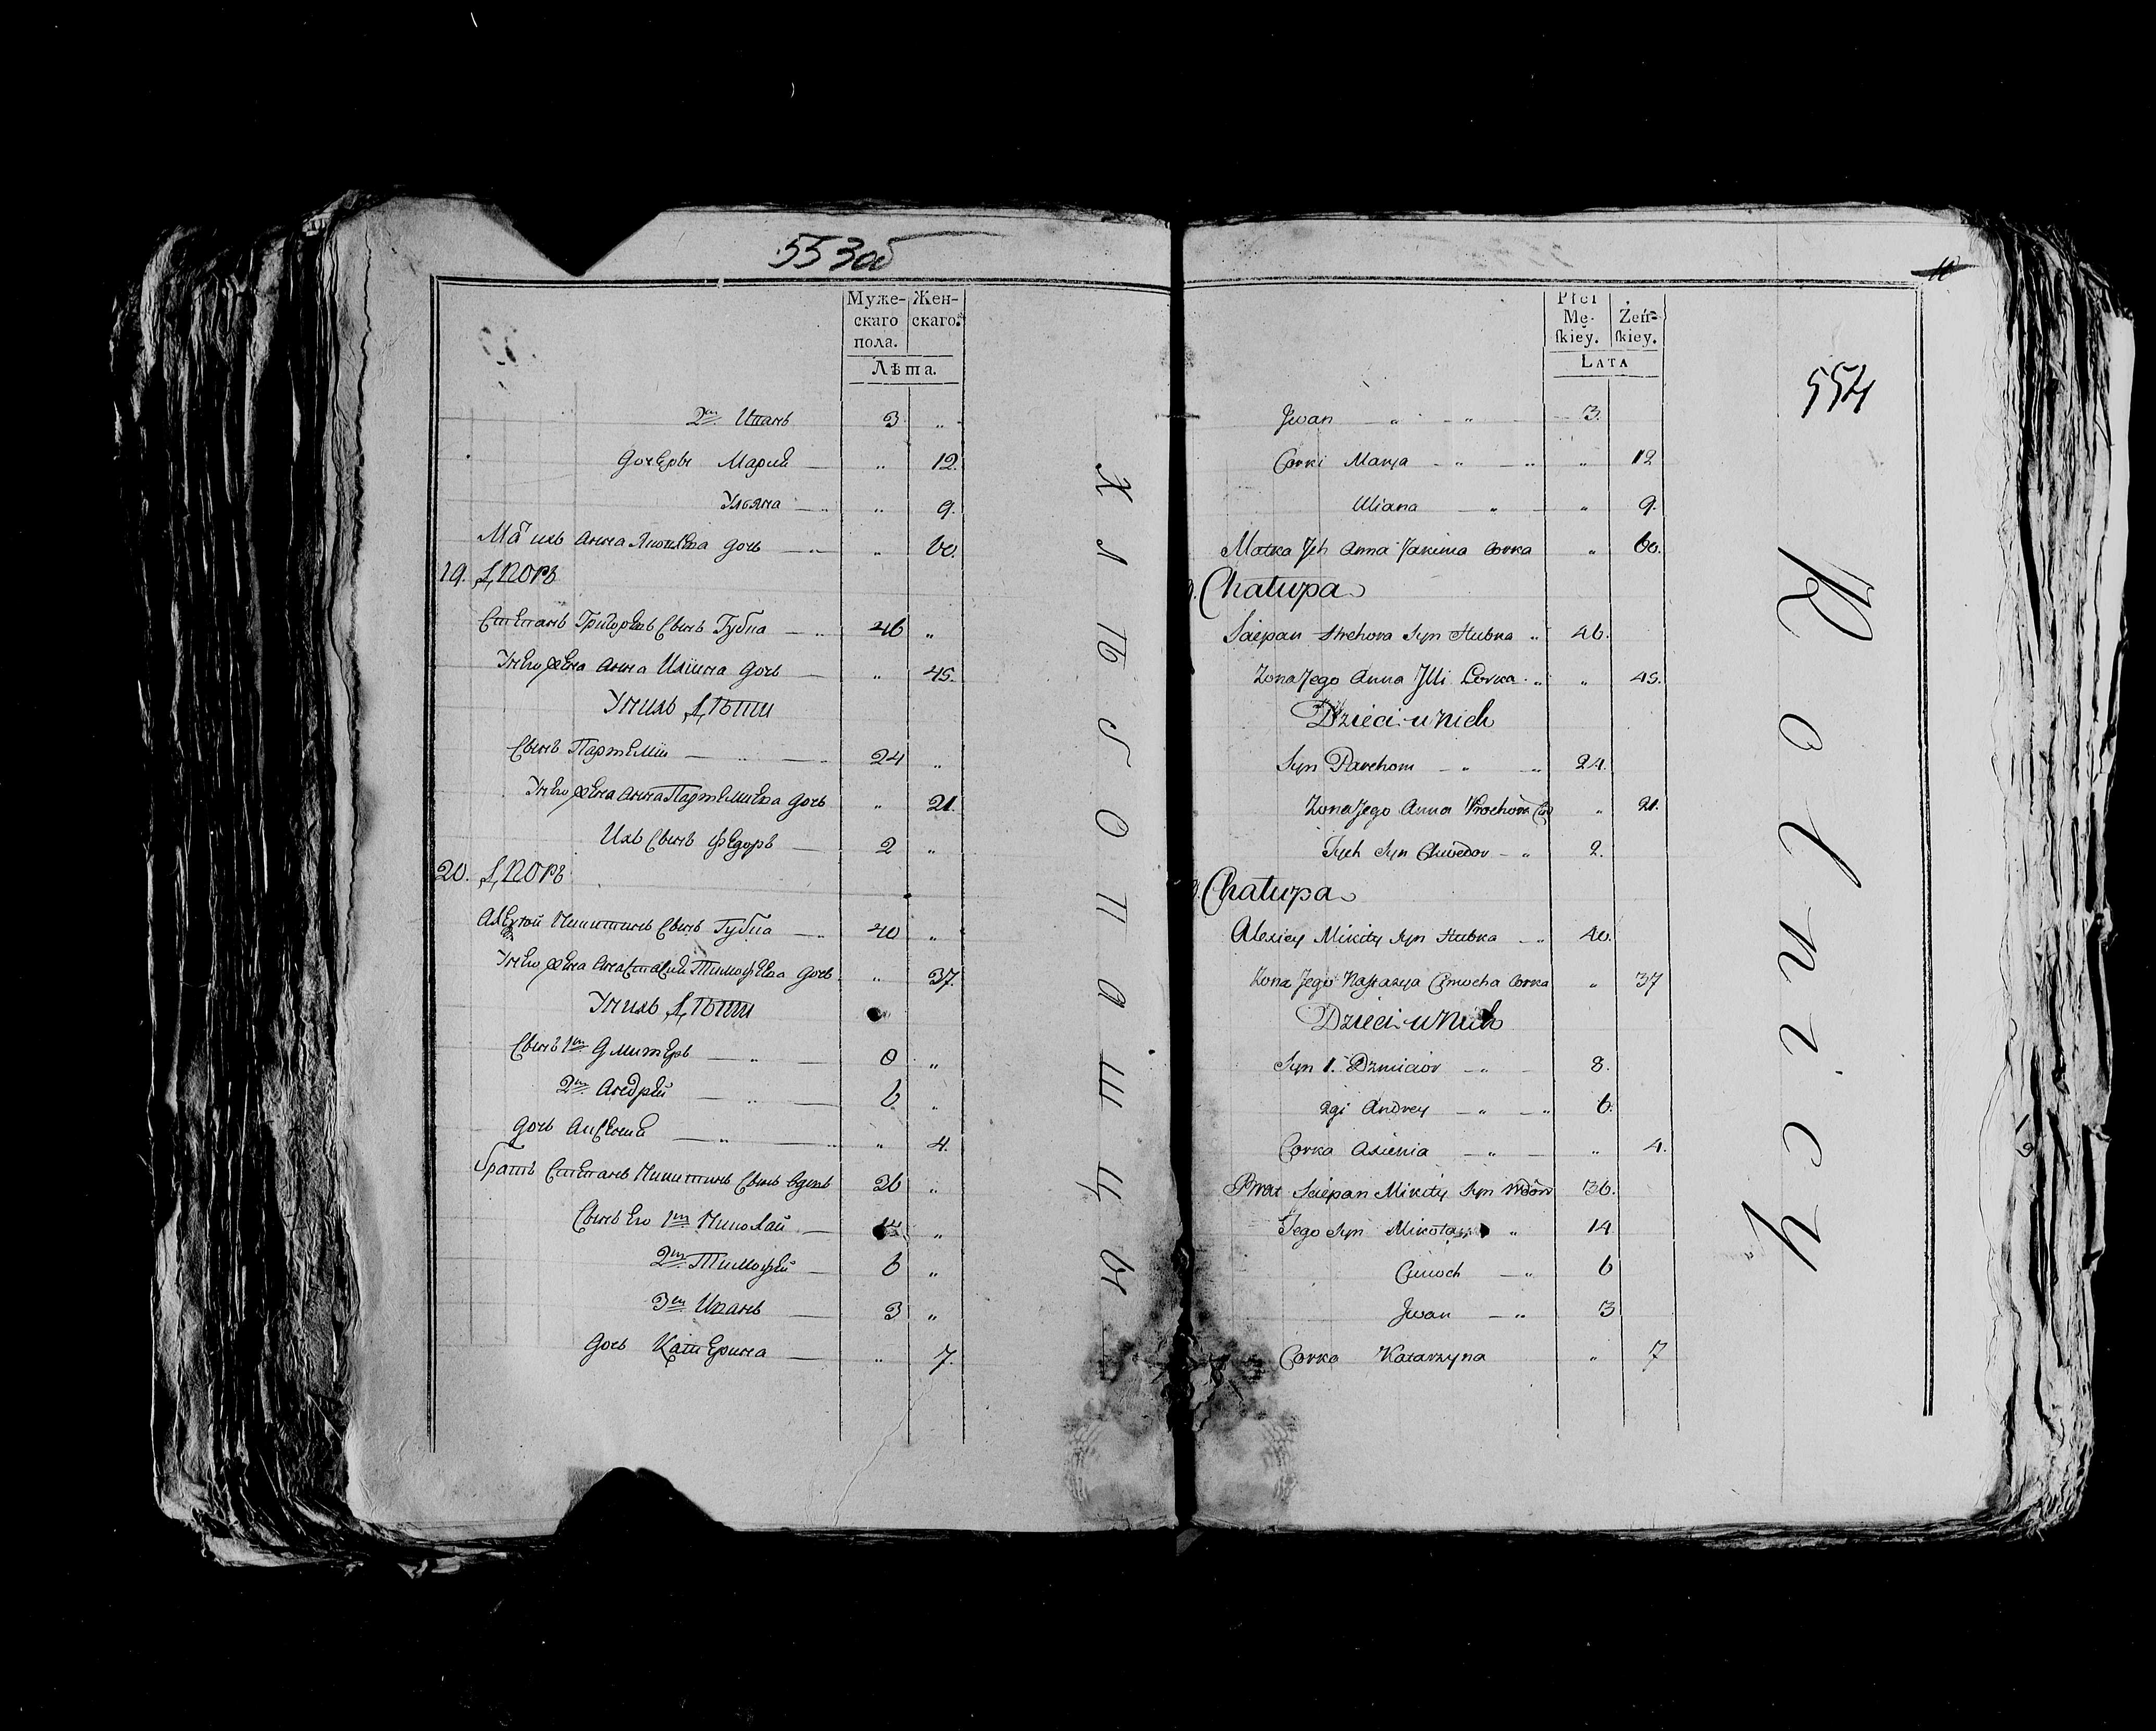 553об
Муже- Жен-
скаго скаго.
пола.
Лѣта.
2й Иванъ 3 „
Дочеры Мария „ 12.
Ульяна „ 9.
Мать ихъ Анна Якимова дочь „ 60.
19. Дворъ
Степанъ Григорьевъ сынъ Губка 46 „
У него жена Анна Илїина дочь „ 45.
У нихъ Дѣти
Сынъ Партемïй 24 „
У него жена Анна дочь „ 21.
Ихъ сынъ Федоръ 2 „
20. Дворъ
Алексей Никитинъ сынъ Губка 40 „
У него жена Анастасия Тимофѣева дочь „ 37.
У нихъ Дѣти
Сынъ 1й Дмитеръ 8 „
2й Андрей 6 „
Дочь Аксения „ 4.
Братъ Степанъ Никитинъ сынъ 36 „
Сынъ его 1й Николай 14 „
2й Тимофей 6 „
3й Иванъ 3 „
Дочь Катерина „ 7.
Х л ѣ б о п а ш ц ы
Płci
Mę- Żeń-
skiey. skiey.
LATA
554
Jwan „ „ 3.
Corki Marya „ „ „ 12
Uliana „ „ 9.
Matka Jch Anna Jakima Corka „ 60.
Chałupa
Sciepan Hrehora Syn Hubka „ 46.
Zona Jego Anna Jlli Corka „ „ 45.
Dzieci u nich
Syn Parchom „ „ 24.
Zona Jego Anna „ 21.
Jych Syn Chwedor „ 2.
Chałupa
Alexiey Mikity Syn Hubka „ 40.
Zona Jego Nastazya Cimocha Corka „ 37
Dzieci u Nich
Syn 1. Dzmicior „ 8.
2gi Andrey „ „ 6.
Corka Axienia „ „ 4.
Brat Sciepan Mikity Syn Wdow 36.
Jego Syn Mikołay „ 14
Cimoch „ 6
Jwan „ 3
Corka Katarzyna „ 7
R o l n i c y